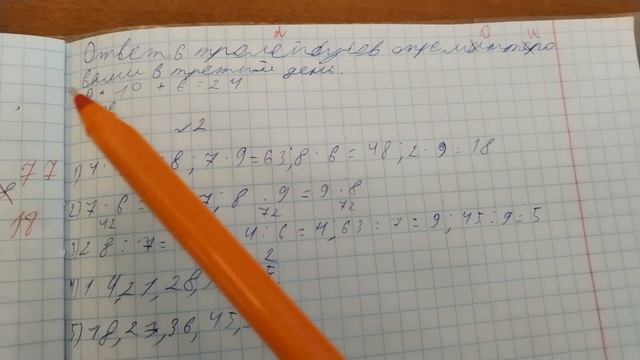 Ответ 6 тролейбусов отремонтиро
вами в третий день.
10 + 6 = 24
№2
77
1) 4 · 8; 7 · 9 = 63; 8 · 6 = 48; 2 · 9 = 18
2) 7 · 6 = 7; 8 · 9 = 9 · 8
42 72 72
18
3) 28 : 7 = 4 : 6 = 4; 63 : 7 = 9; 45 : 9 = 5
4) 14, 21, 28,
5) 18, 27, 36, 45,